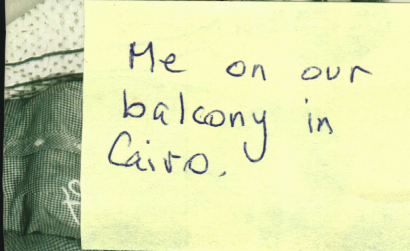 Me on our
balcony in
Cairo.